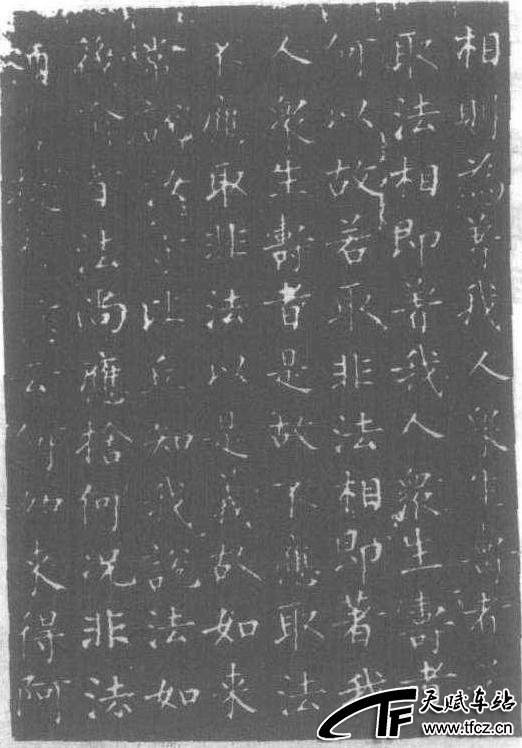 相則為著我人眾生壽者
取法相即著我人眾生壽者
何以故若取非法相即著我
人眾生壽者是故不應取法
不應取非法以是義故如來
常說汝等比丘知我說法如
筏喻者法尚應捨何況非法
提云何如來得阿
天赋车站
www.tfcz.cn